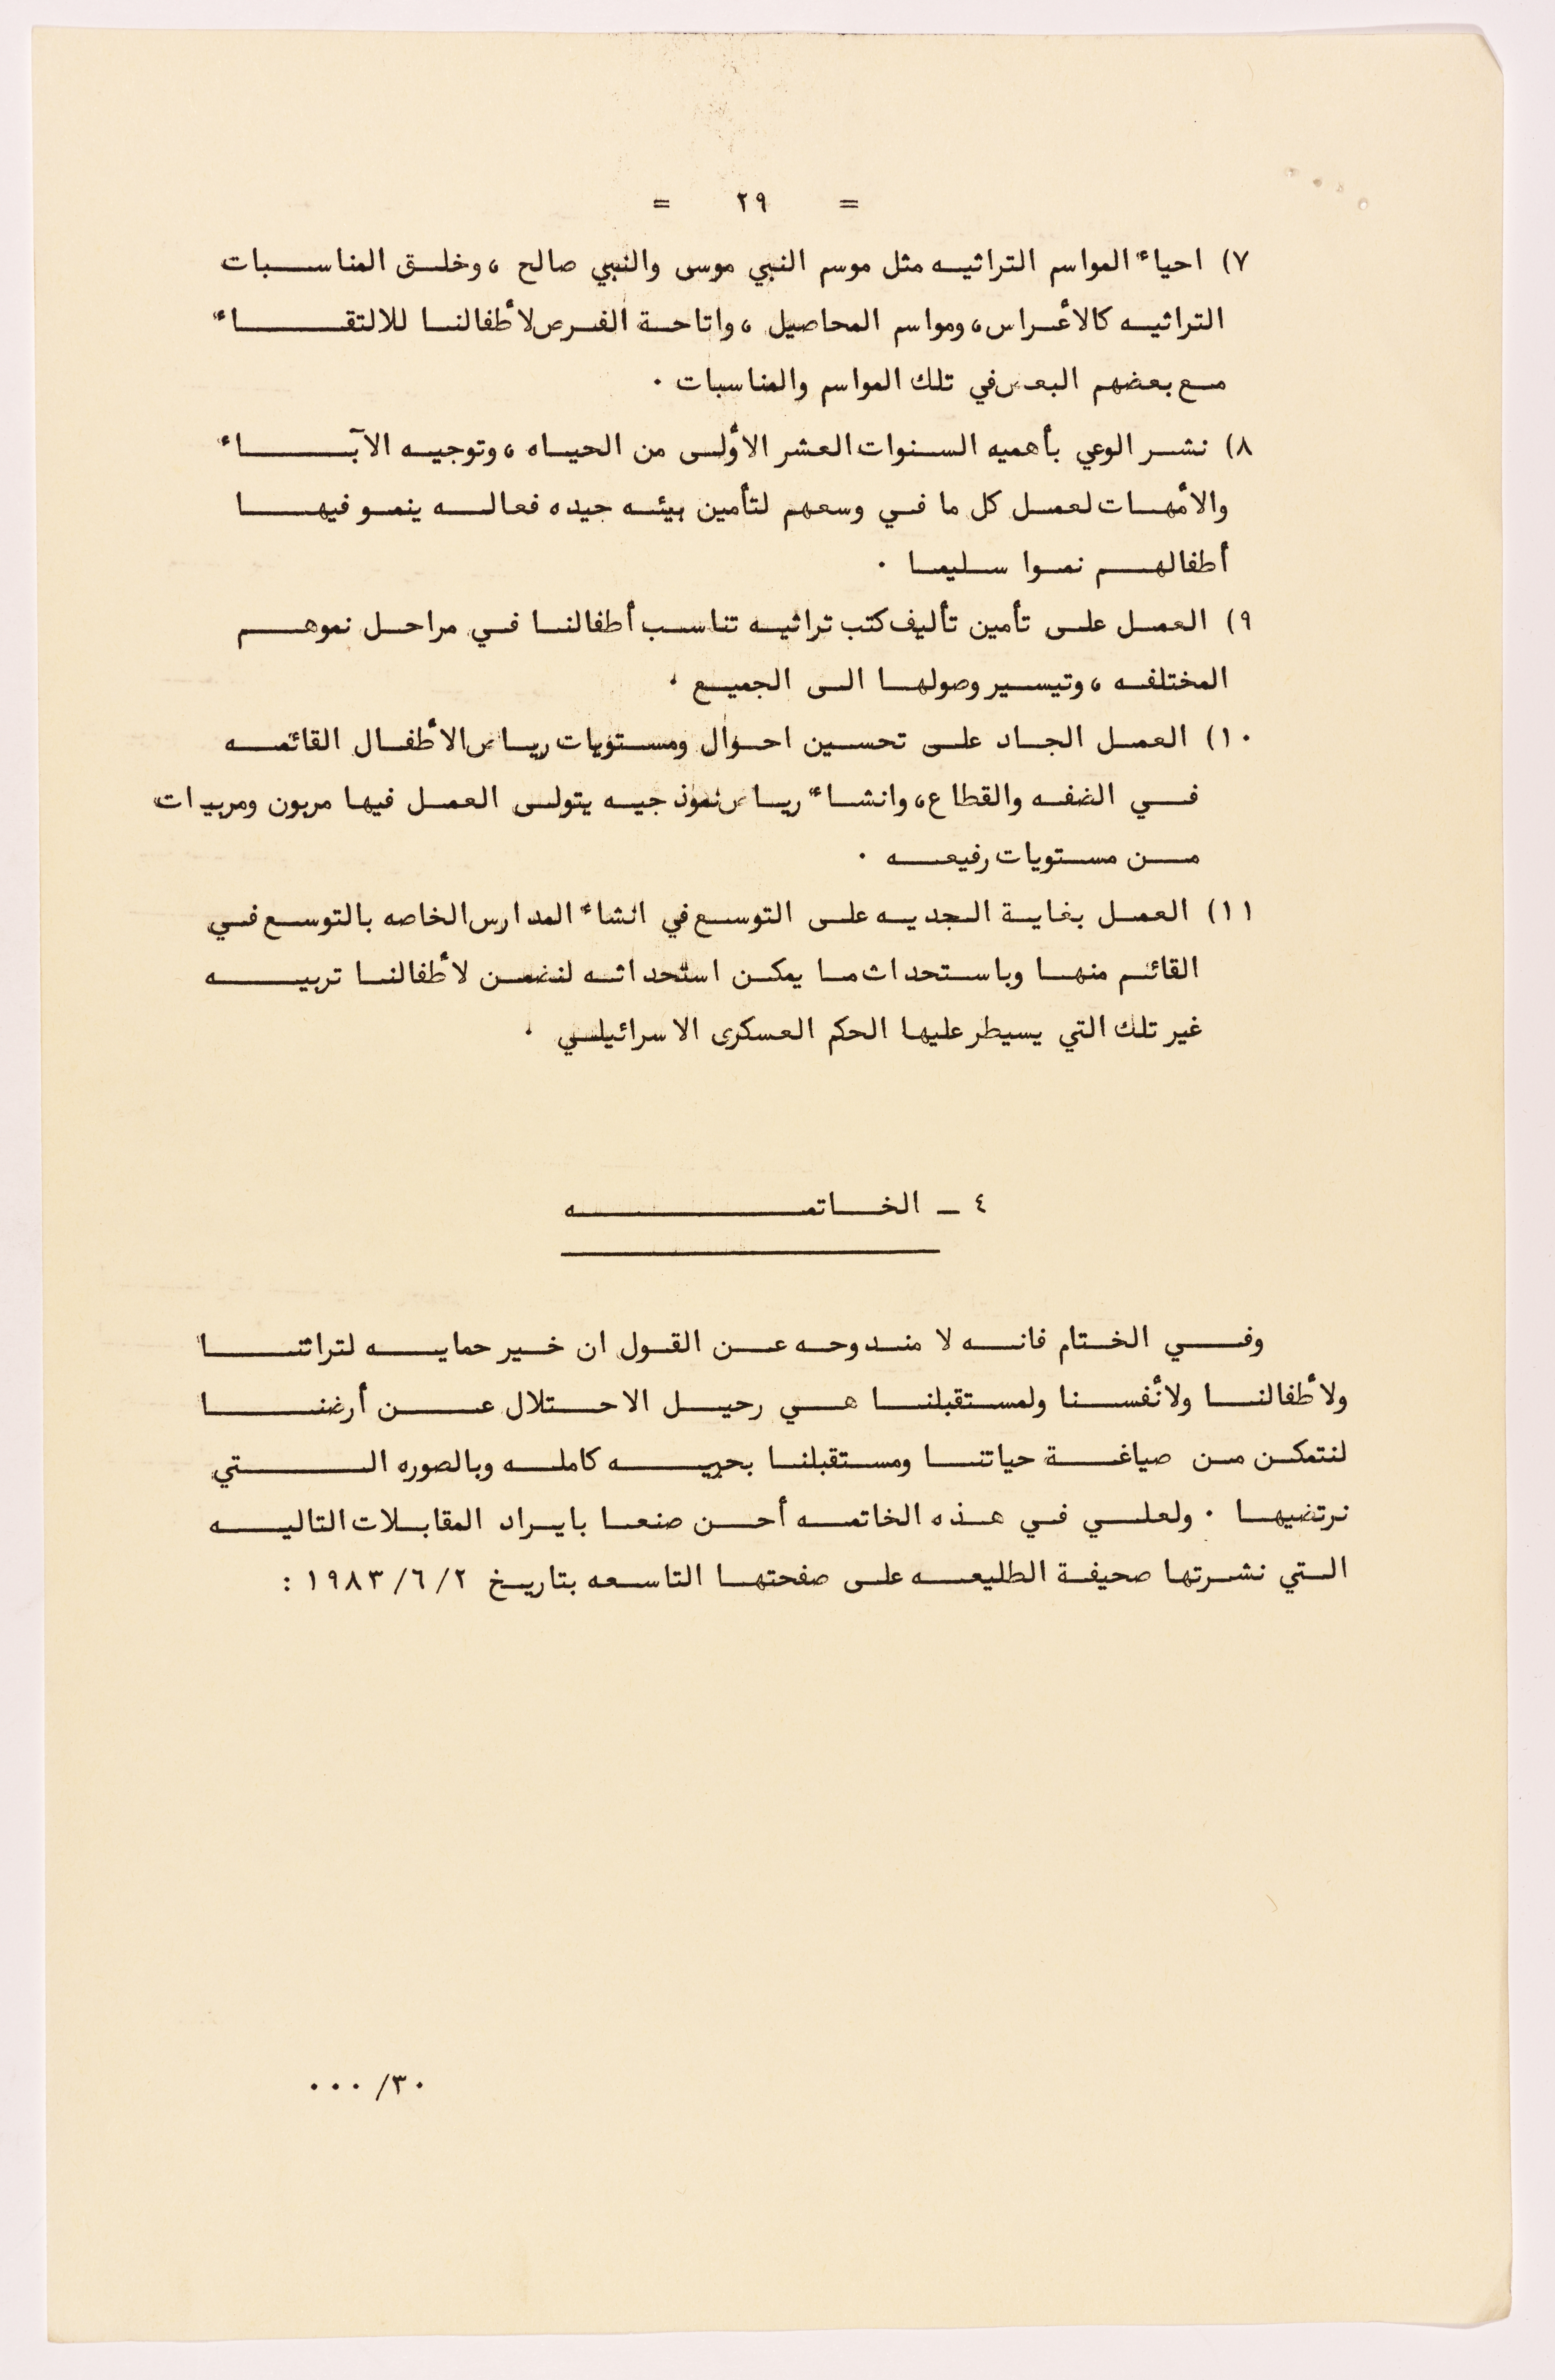 = ٢٩ =
٧) احياء المواسم التراثيه مثل موسم النبي موسى والنبي صالح ، وخلق المناسبات
التراثيه كالأعراس، ومواسم المحاصيل ، واتاحة الفرص لأطفالنا للالتقاء
مع بعضهم البعض في تلك المواسم والمناسبات .
٨) نشر الوعي بأهميه السنوات العشر الأولى من الحياه ، وتوجيه الآباء
والأمهات لعمل كل ما في وسعهم لتأمين بيئه جيده فعاله ينمو فيها
أطفالهم نموا سليما .
٩) العمل على تأمين تأليف كتب تراثيه تناسب أطفالنا في مراحل نموهم
المختلفه ، وتيسير وصولها الى الجميع .
١٠) العمل الجاد على تحسين احوال ومستويات رياض الأطفال القائمه
في الضفه والقطاع، وانشاء رياض نموذجيه يتولى العمل فيها مربون ومربيات
من مستويات رفيعه .
١١) العمل بغاية الجديه على التوسع في انشاء المدارس الخاصه بالتوسع في
القائم منها وباستحداث ما يمكن استحداثه لنضمن لأطفالنا تربيه
غير تلك التي يسيطر عليها الحكم العسكرى الاسرائيلي .
٤ ـ الخاتمه
وفي الختام فانه لا مندوحه عن القول ان خير حمايه لتراثنا
ولأطفالنا ولأنفسنا ولمستقبلنا هي رحيل الاحتلال عن أرضنا
لنتمكن من صياغة حياتنا ومستقبلنا بحريه كامله وبالصوره التي
نرتضيها . ولعلي في هذه الخاتمه أحسن صنعا بايراد المقابلات التاليه
التي نشرتها صحيفة الطليعه على صفحتها التاسعه بتاريخ ٢/٦/١٩٨٣ :
٣٠/ ...